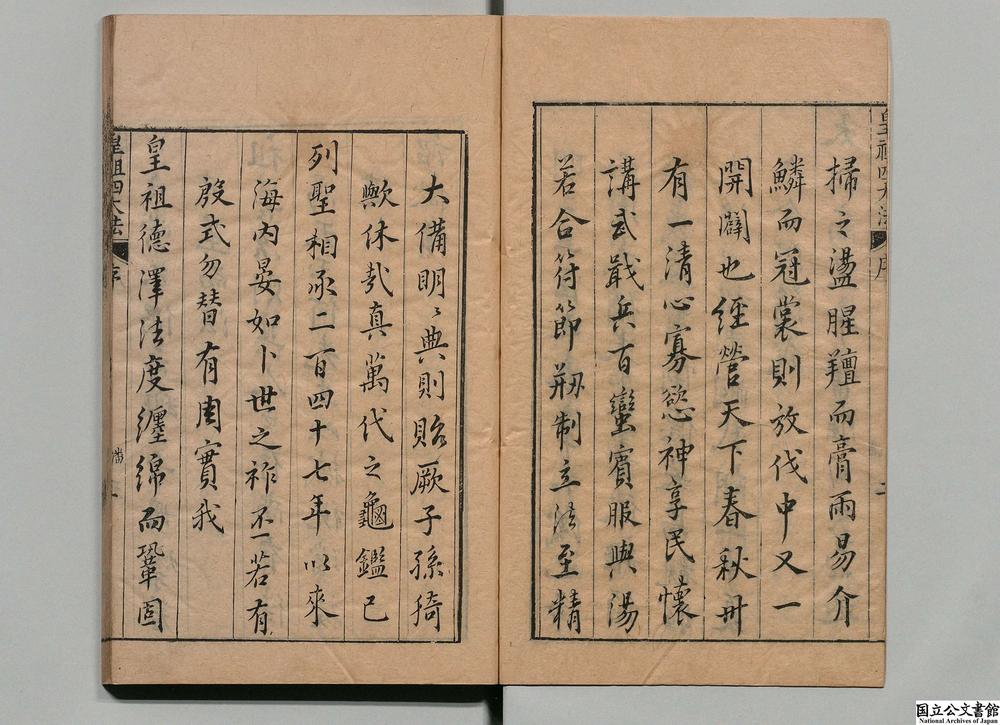 皇祖四大法 序 二
掃之盪腥羶而膏雨易介
鱗而冠裳則放伐中又一
開闢也經營天下春秋卅
有一清心寡慾神享民懷
講武戢兵百蠻賓服與湯
若合符節剙制立法至精
大備明〻典則貽厥子孫猗
歟休㦲真萬代之龜鑑已
列聖相承二百四十七年以來
海內晏如卜世之祚不一若有
殷式勿替有周實我
皇祖德澤法度纏綿而鞏固
皇祖四大法 序
国立公文書館
National Archives of Japan